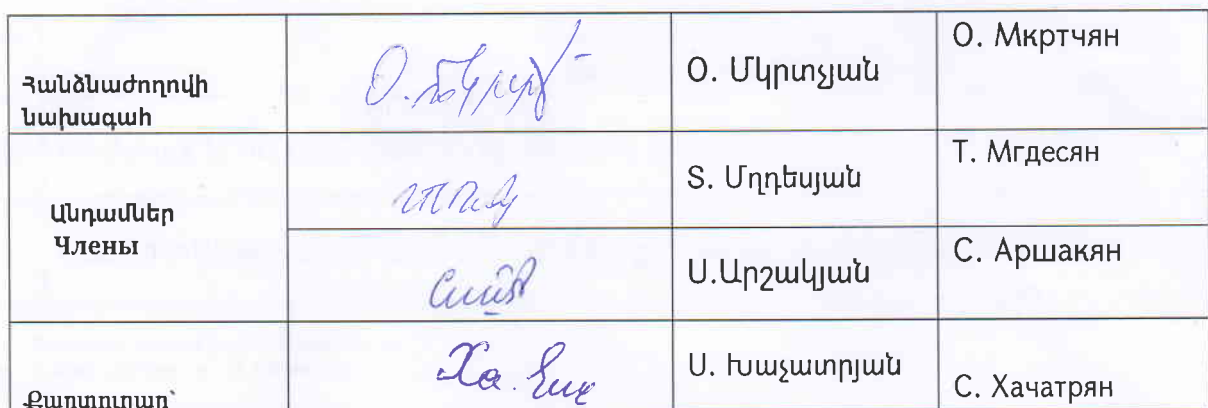 Հանձնաժողովի
նախագահ
Օ. Մկրտչյան
О. Мкртчян
Անդամներ
Члены
Տ. Մղդեսյան
Т. Мгдесян
Ս.Արշակյան
С. Аршакян
Քարտուղար՝
Ս. Խաչատրյան
С. Хачатрян